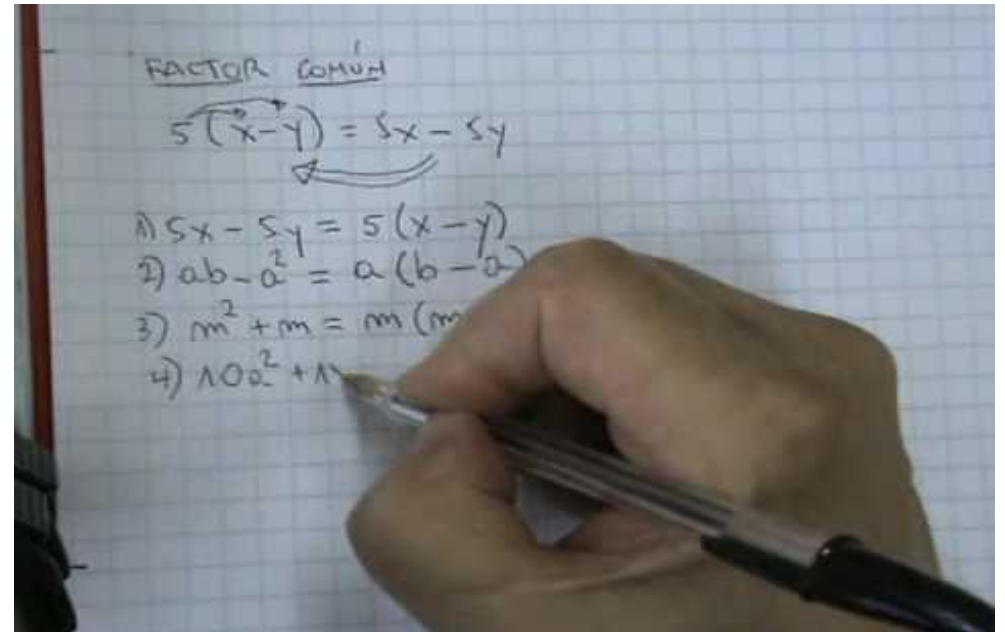 FACTOR COMÚN
5(x-y) = 5x - 5y
1) 5x - 5y = 5(x-y)
2) ab - a² = a(b-a)
3) m² + m = m(m
4) 10a² + 1